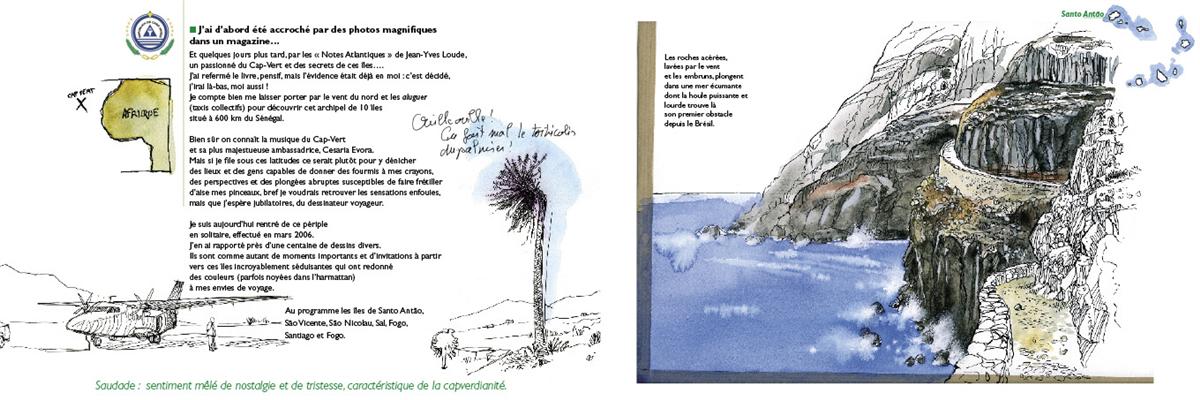 ■ J'ai d'abord été accroché par des photos magnifiques
dans un magazine...
Et quelques jours plus tard, par les « Notes Atlantiques » de Jean-Yves Loude,
un passionné du Cap-Vert et des secrets de ces îles....
J'ai refermé le livre, pensif, mais l'évidence était déjà en moi : c'est décidé,
j'irai là-bas, moi aussi !
Je compte bien me laisser porter par le vent du nord et les aluguer
(taxis collectifs) pour découvrir cet archipel de 10 îles
situé à 600 km du Sénégal.
Bien sûr on connaît la musique du Cap-Vert
et sa plus majestueuse ambassadrice, Cesaria Evora.
Mais si je file sous ces latitudes ce serait plutôt pour y dénicher
des lieux et des gens capables de donner des fourmis à mes crayons,
des perspectives et des plongées abruptes susceptibles de faire frétiller
d'aise mes pinceaux, bref je voudrais retrouver les sensations enfouies,
mais que j'espère jubilatoires, du dessinateur voyageur.
Je suis aujourd'hui rentré de ce périple
en solitaire, effectué en mars 2006.
J'en ai rapporté près d'une centaine de dessins divers.
Ils sont comme autant de moments importants et d'invitations à partir
vers ces îles incroyablement séduisantes qui ont redonné
des couleurs (parfois noyées dans l'harmattan)
à mes envies de voyage.
Au programme les îles de Santo Antão,
São Vicente, São Nicolau, Sal, Fogo,
Santiago et Fogo.
CAP VERT
X
AFRIQUE
Ouillouille !
Ca fait mal le torticolis
du palmier !
Saudade : sentiment mêlé de nostalgie et de tristesse, caractéristique de la capverdianité.
Santo Antão
Les roches acérées,
lavées par le vent
et les embruns, plongent
dans une mer écumante
dont la houle puissante et
lourde trouve là
son premier obstacle
depuis le Brésil.